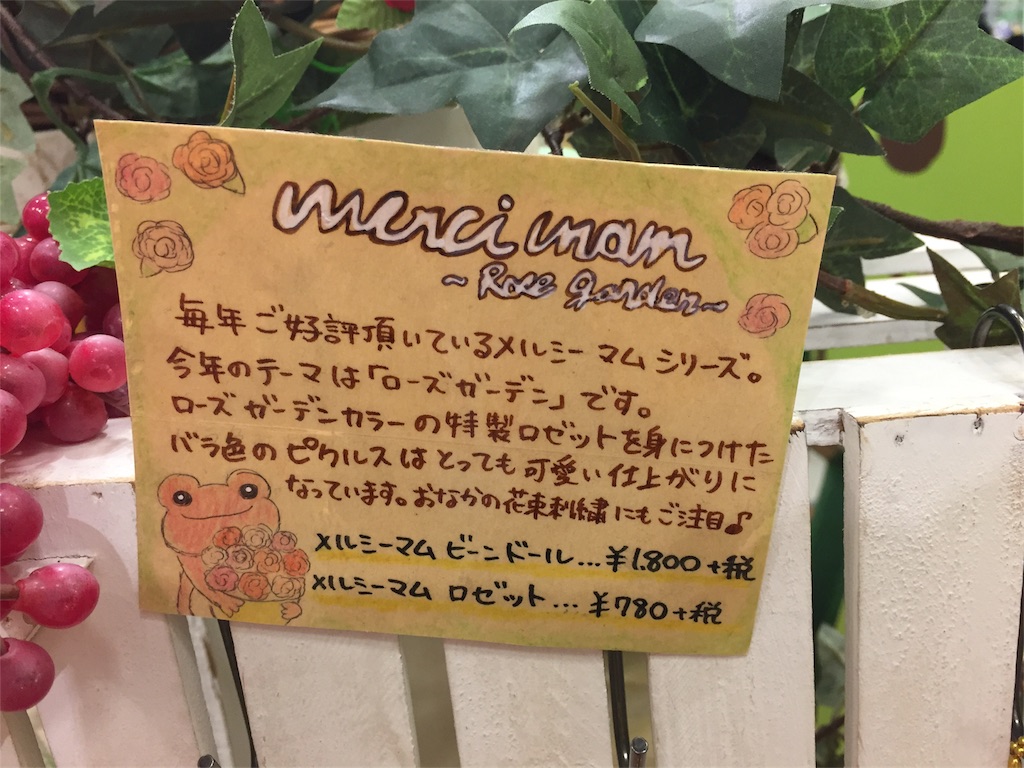 merci mam
~Rose garden~
毎年ご好評頂いているメルシー マム シリーズ。
今年のテーマは「ローズガーデン」です。
ローズガーデンカラーの特製ロゼットを身につけた
バラ色のピクルスはとっても可愛い仕上がりに
なっています。おなかの花束刺繍にもご注目♪
メルシーマム ビーンドール...¥1.800+税
メルシーマム ロゼット...¥780+税